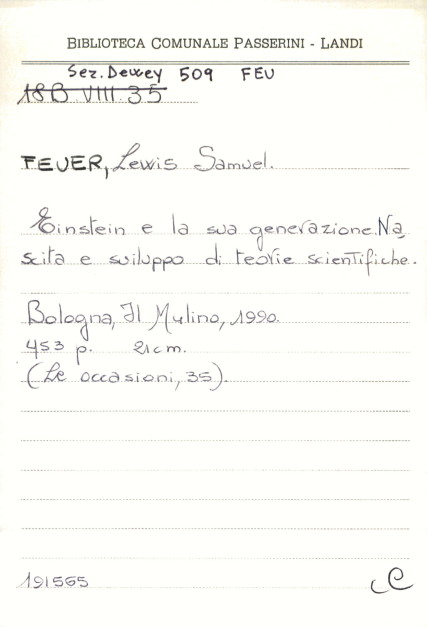 BIBLIOTECA COMUNALE PASSERINI - LANDI
Sez. Dewey 509 FEU
18B.VIII.35
FEUER, Lewis Samuel.
Einstein e la sua generazione. Na
scita e sviluppo di teorie scientifiche.
Bologna, Il Mulino, 1990.
453 p. 21cm.
(Le occasioni, 35).
191565